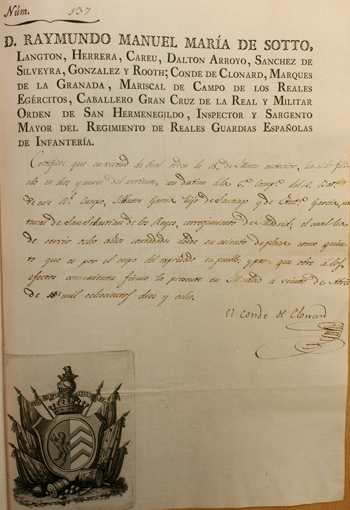 Núm. 137
D. RAYMUNDO MANUEL MARÍA DE SOTTO,
LANGTON, HERRERA, CAREU, DALTON ARROYO, SANCHEZ DE
SILVEYRA, GONZALEZ Y ROOTH; CONDE DE CLONARD, MARQUES
DE LA GRANADA, MARISCAL DE CAMPO DE LOS REALES
EGÉRCITOS, CABALLERO GRAN CRUZ DE LA REAL Y MILITAR
ORDEN DE SAN HERMENEGILDO, INSPECTOR Y SARGENTO
MAYOR DEL REGIMIENTO DE REALES GUARDIAS ESPAÑOLAS
DE INFANTERÍA.
Certifico que en virtud de Real orden de de Marzo anterior, ha sido filia
do en diez y nueve del corriente, con destino a la Comp.ª del Bat.on
de ese R.l Cuerpo, García hijo de Santiago y de García, na
tural de San Sebastian de los Reyes, corregimiento de Madrid, el cual ha
de servir ocho años contados desde su asiento de plaza como quin
to que es por el cupo del expresado su pueblo, y para que obre a los
efectos convenientes firmo la presente en Madrid a veinte de Abril
de mil ochocientos diez y ocho.
El Conde de Clonard